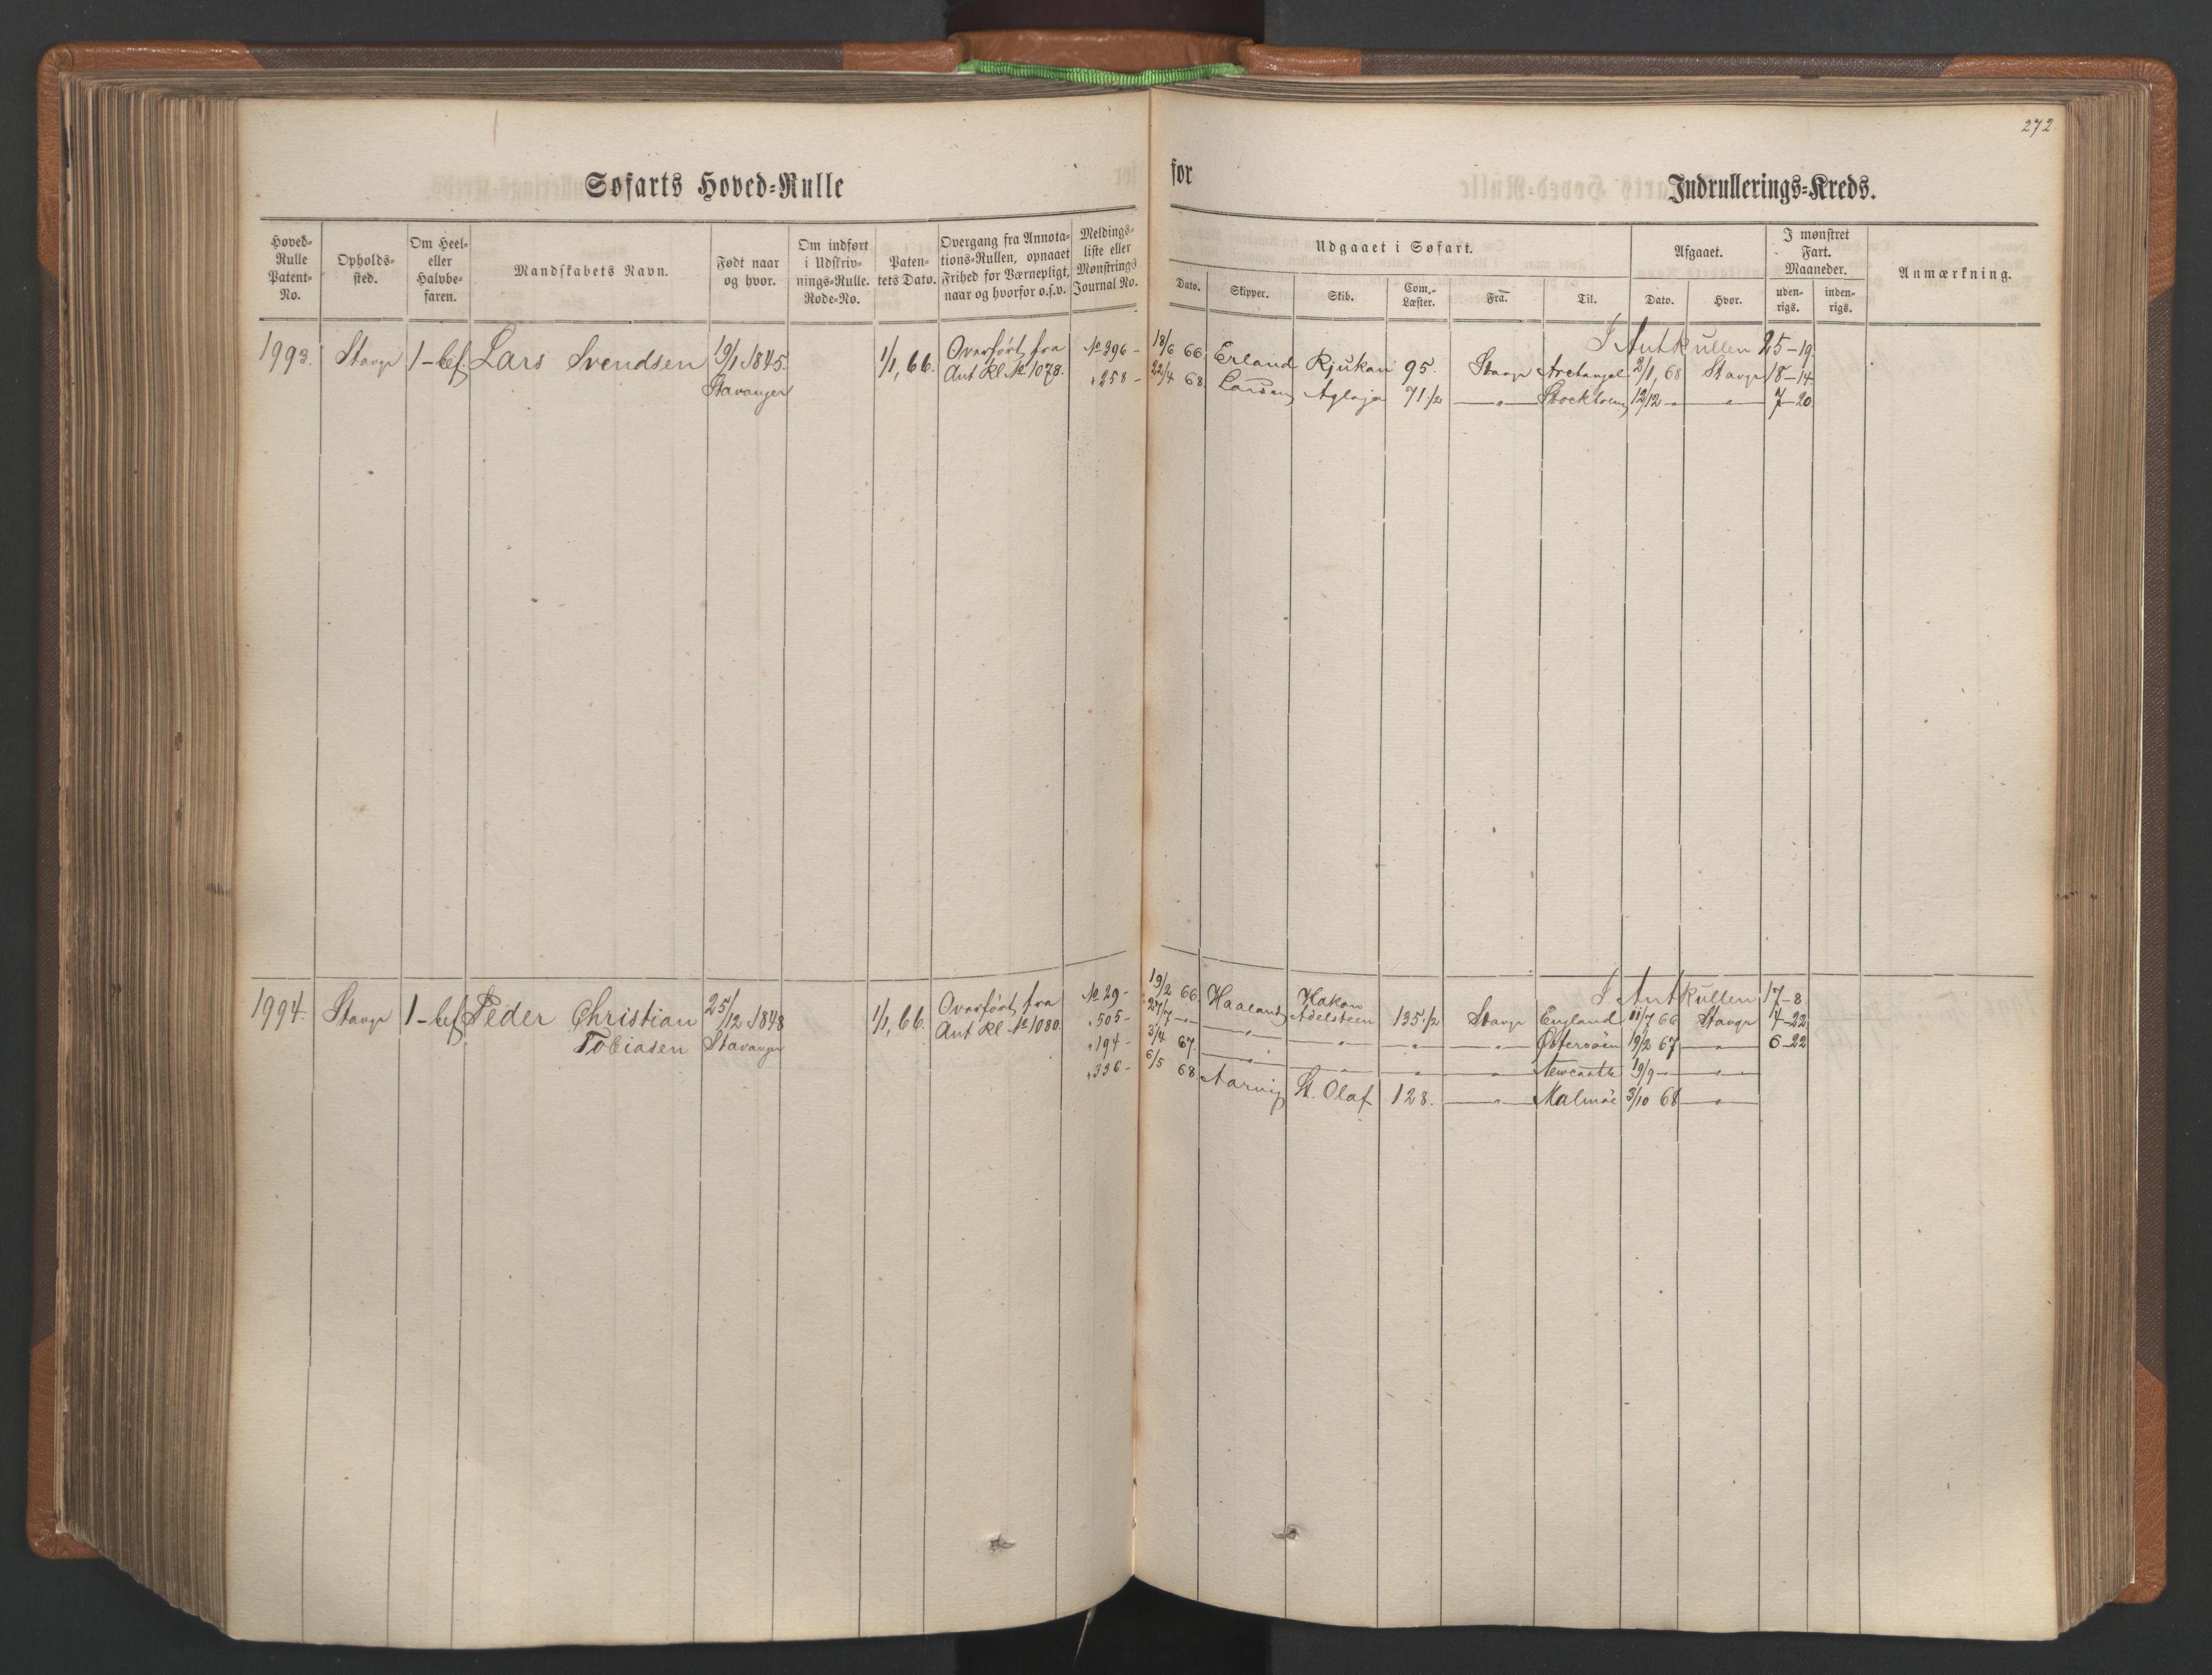 272
Søfarts Hoved-Rulle for Indrullerings-Kreds.
Hoved-Rulle Patent-No.
Opholds-sted.
Om Heel- eller Halvbe-faren.
Mandskabets Navn.
Født naar og hvor.
Om indført i Udskriv-nings-Rulle. Rode-No.
Paten-tets Dato.
Overgang fra Annota-tions-Rullen, opnaaet Frihed for Værnepligt, naar og hvorfor o.s.v.
Meldings-liste eller Mønstrings Journal No.
Udgaaet i Søfart.
Dato.
Skipper.
Skib.
Com.-Læster.
Fra.
Til.
Afgaaet.
Dato.
Hvor.
I mønstret Fart. Maaneder.
uden-rigs.
inden-rigs.
Anmærkning.
I Ant Rullen 25-19.
1993. Stavgr 1-bef. Lars Svendsen 19/1 1845. Stavanger 1/1, 66. Overført fra Ant Rl No 1078.
No 396- 18/6 66 Erland Rjukan 95. Stavgr Archangel 2/1, 68 Stavgr 18-14
" 258- 22/4 68 Larsen Aglaja 71 1/2 —"— Stockholm 12/12 -"- —"— 7-20
I Ant Rullen 17-8.
1994. Stavgr 1-bef. Peder Christian Tobiasen 25/12 1848 Stavanger 1/1, 66. Overført fra Ant Rl No 1080.
No 29- 19/2 66 Haaland Hakon Adelsteen 135 1/2 Stavgr England 11/7 66 Stavgr 4-22
" 505- 27/7 -"- —"— —"— —"— —"— Østersøen 19/2 67 —"— 6-22
" 194- 3/4 67. —"— —"— —"— —"— Newcastle 19/9 -"- —"—
" 336- 6/5 68 Aarvig St. Olaf 128. —"— Malmöe 3/10 68 —"—